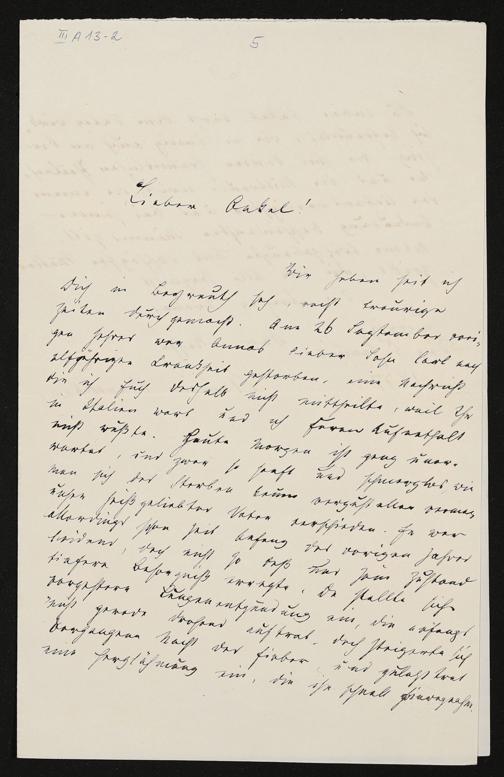 III A 13-2
5
Lieber Onkel!
Wir haben seit ich
Dich in Bayreuth sah, recht traurige
Zeiten durchgemacht. Am 26 September vori-
gen Jahres war Annas lieber Sohn Carl nach
Krankheit gestorben, eine Nachricht
die ich Euch deshalb nicht mittheilte, weil Ihr
in Italien wart und ich Euren Aufenthalt
nicht wußte. Heute Morgen ist ganz uner-
wartet, und zwar so sanft und schmerzlos wie
man sich das Sterben kaum vorzustellen vermag,
unser heißgeliebter Vater verschieden. Er war
allerdings schon seit Anfang des vorigen Jahres
leidend, doch nicht so daß sein Zustand
tiefere Besorgniß erregte. Da stellte sich
vorgestern Lungenentzündung ein, die anfangs
nicht gerade drohend auftrat. doch steigerte sich
vergangene Nacht das Fieber, und zuletzt trat
eine Herzlähmung ein, die ihn schnell hinwegnahm.